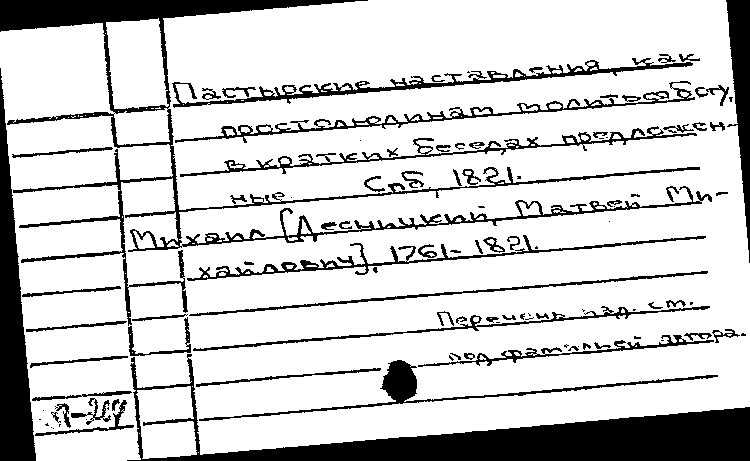 Пастырские наставления, как
простолюдинам молиться богу,
в кратких беседах предложен-
ные Спб, 1821.
Михаил [Десницкий, Матвей Ми-
хайлович], 1761-1821.
Перечень изд. см.
под фамилией автора.
П-264